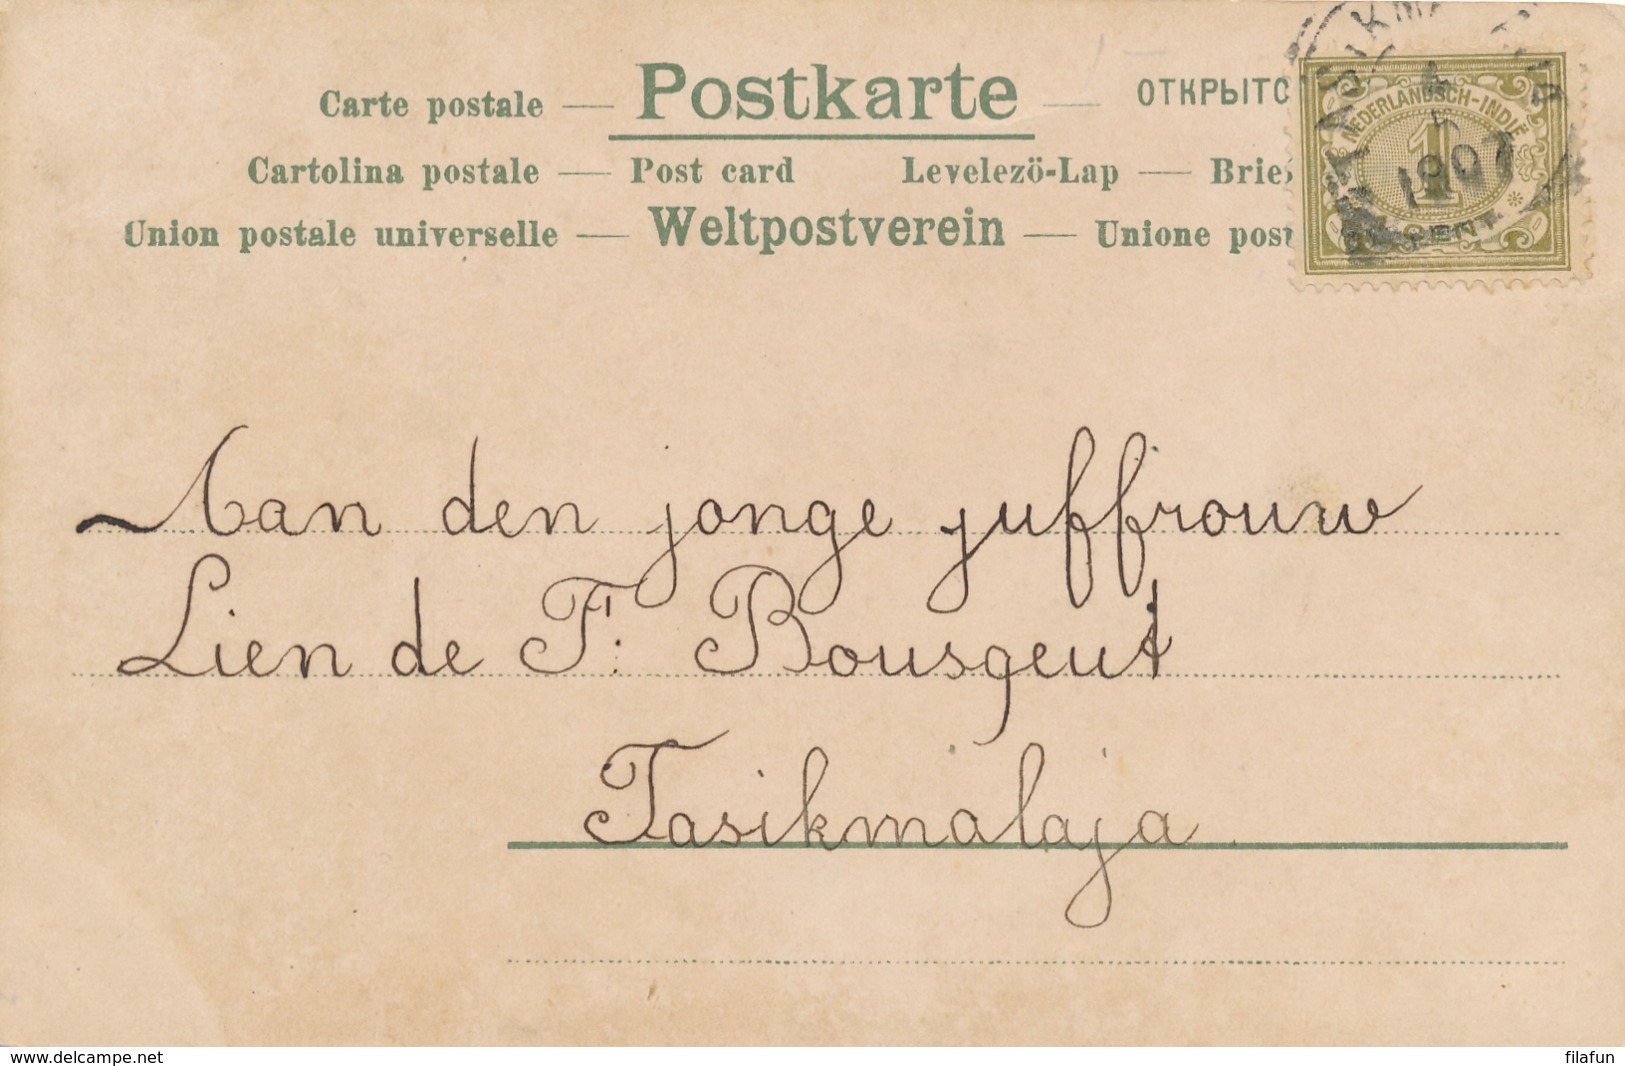 Carte postale — Postkarte — ОТКРЫТО
Cartolina postale — Post card Levelezö-Lap — Brief
Union postale universelle — Weltpostverein — Unione post
TASIKMA
4
5
1907
NEDERLANDSCH-INDIË
1
CENT
Aan den jonge juffrouw
Lien de F: Bousgeut
Tasikmalaja.
www.delcampe.net
filafun